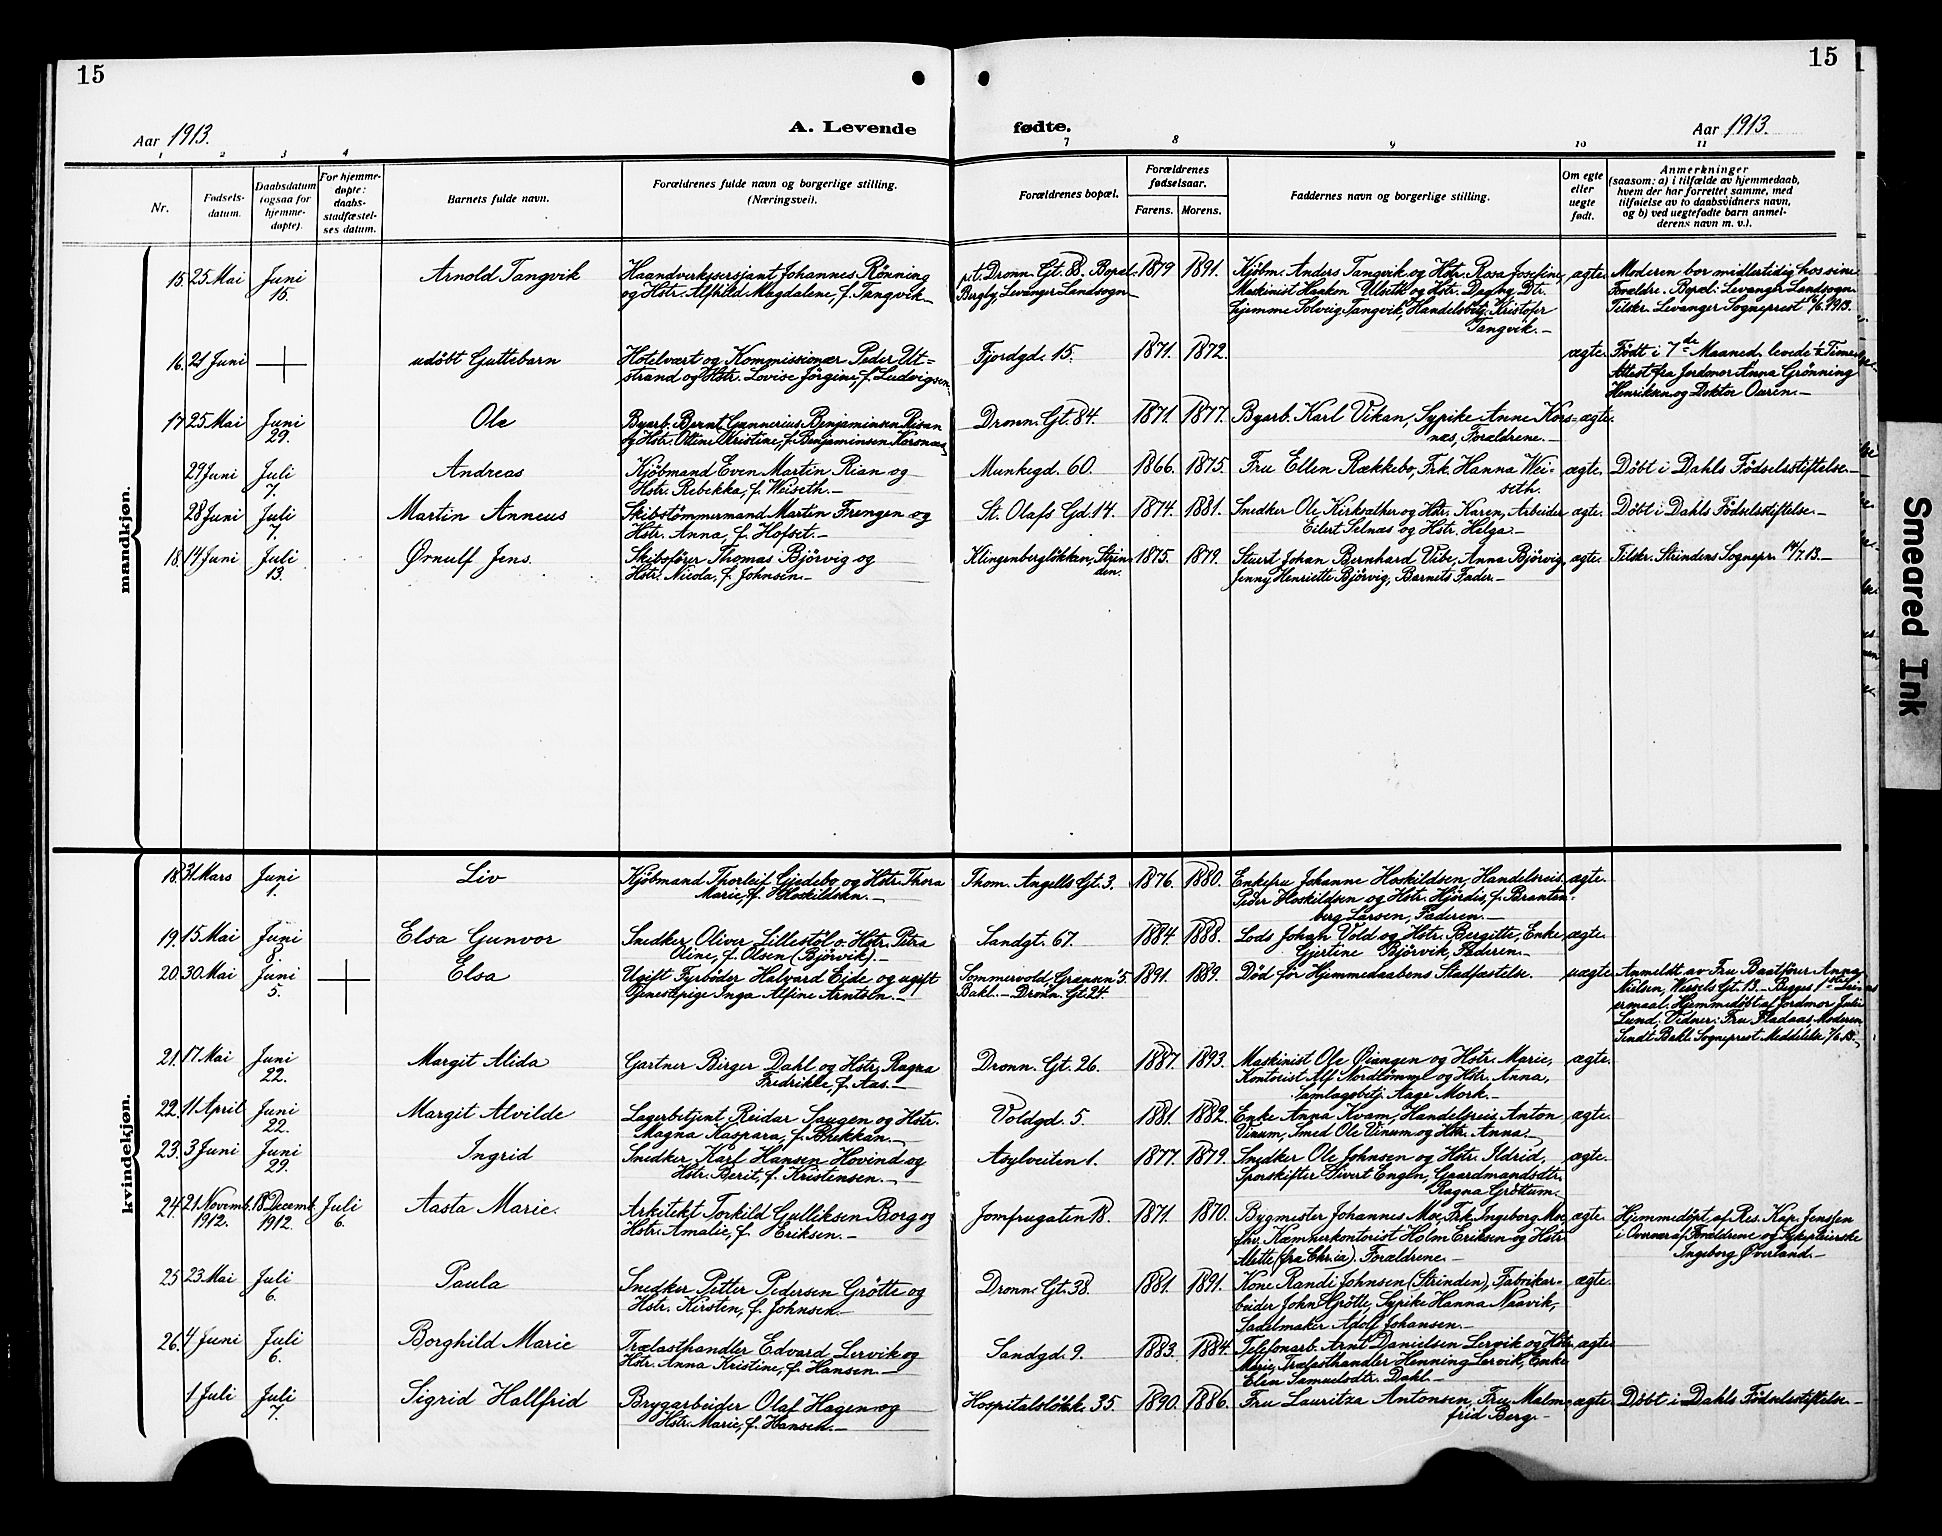 15
15
Aar 1913.
A. Levende
fødte.
Aar 1913.
1
2
3
4
7
8
9
10
11
Nr.
Fødsels-
datum.
Daabsdatum
(ogsaa for
hjemme-
døpte).
For hjemme-
døpte:
daabs-
stadfæstel-
ses datum.
Barnets fulde navn.
Forældrenes fulde navn og borgerlige stilling.
(Næringsvei).
Forældrenes bopæl.
Forældrenes
fødselsaar.
Farens.
Morens.
Faddernes navn og borgerlige stilling.
Om egte
eller
uegte
født.
Anmerkninger
(saasom: a) i tilfælde av hjemmedaab,
hvem der har forrettet samme, med
tilføielse av to daabsvidners navn,
og b) ved uegtefødte barn anmel-
derens navn m. v.).
mandkjøn.
15. 25 Mai
Juni
15.
Arnold Tangvik
Haandverksersjant Johannes Rönning
og Hstr. Alfhild Magdalene, f. Tangvik
pt. Dronn. Gt. 88. Bopæl
Bergby, Levanger Landsogn
1879
1891.
Kjöbm. Anders Tangvik og Hstr. Rosa Josefine,
Maskinist Haakon Ulseth og Hstr. Dagny, Dtr.
hjemme Solveig Tangvik, Handelsbetj. Kristofer
Tangvik.
ægte.
Moderen bor midlertidig hos sine
Forældre. Bopæl: Levanger Landsogn
Tilskr. Levanger Sogneprest 16/6 1913.
16. 21 Juni
udöbt Guttebarn
Hotelvært og Kommissionær Peder Ut-
strand og Hstr. Lovise Jörgine, f. Ludvigsen
Fjordgd. 15.
1871.
1872.
ægte.
Født i 7de Maaned levede ½ Time
Attest fra Jordmor Anna Grönning
Henriksen og Doktor Ouren
17 25 Mai
Juni
29.
Ole
Byarb. Bernt Gunnerius Benjaminsen Risan
og Hstr. Oline Kristine, f. Benjaminsen Korsnæs
Dronn. Gt. 84.
1871.
1877.
Byarb. Karl Vikan, Sypike Anne Kors-
næs, Forældrene.
ægte.
29 Juni
Juli
7.
Andreas
Kjöbmand Even Martin Rian og
Hstr. Rebekka, f. Weiseth.
Munkegd. 60.
1866.
1875.
Fru Ellen Rækkebo, Frk. Hanna Wei-
seth.
ægte.
Döbt i Dahls Födselsstiftelse.
28 Juni
Juli
7.
Martin Anneus
Skibstömmermand Martin Frengen og
Hstr. Anna, f. Hofset.
St. Olafs Gd. 14.
1874.
1881.
Snedker Ole Kirksæther og Hstr. Karen, Arbeider
Eilert Selnæs og Hstr. Helga
ægte.
Döbt i Dahls Födselsstiftelse.
18. 14 Juni
Juli
13.
Ørnulf Jens.
Skibsförer Thomas Björvig og
Hstr. Nicola, f. Johnsen.
Klingenberglökken, Strin-
den.
1875.
1879.
Stuert Johan Bernhard Vibe, Anna Björvig,
Jenny Henriette Björvig, Barnets Fader.
ægte.
Tilskr. Strindens Sognepr. 14/7 13.
kvindekjøn.
18. 31 Mars
Juni
1.
Liv
Kjöbmand Thorleif Gjedebo og Hstr. Thora
Marie, f. Hoskildsen.
Thom. Angells Gt. 3.
1876.
1880.
Enkefru Johanne Hoskildsen, Handelsreis.
Peder Hoskildsen og Hstr. Hjördis, f. Branten-
berg Larsen, Faderen.
ægte.
19. 15 Mai
Juni
8.
Elsa Gunvor
Snedker Oliver Lillestöl o. Hstr. Petra
Oline, f. Olsen (Björvik).
Sandgt. 67.
1884.
1888.
Lods Johan Vold og Hstr. Bergitte, Enke
Gjertine Björvik, Faderen.
ægte.
20. 30 Mai
Juni
5.
Elsa
Ugift Fyrböder Halvard Eide og ugift
Tjenestepige Inga Alfine Arntsen.
Sommervold, Grænsen 5
Bakl. Dronn. Gt. 24.
1891.
1889.
Död för Hjemmedaabens Stadfæstelse.
uægte
Anmeldt av Fru Baatförer Anna
Nielsen, Wessels Gt. 13. Begges 1ste Leier-
ermaal. Hjemmedöbt af Jordmor Julie
Lund; Vidner: Fru Fladaas, Moderen
Sendt Bakl. Sogneprest Meddelelse 7/6 13.
21. 17 Mai
Juni
22.
Margit Alida
Gartner Birger Dahl og Hstr. Ragna
Fredrikke, f. Aas.
Dronn. Gt. 26.
1887.
1893.
Maskinist Ole Öiangen og Hstr. Marie,
Kontorist Alf Nordtömme og Hstr. Anna,
Samlagsbetj. Aage Mork.
ægte.
22. 11 April
Juni
22.
Margit Alvilde
Lagerbetjent Reidar Saugen og Hstr.
Magna Kaspara, f. Brekkan.
Voldgd. 5.
1881.
1882.
Enke Anna Kvam, Handelsreis. Anton
Vinum, Smed Ole Vinum og Hstr. Anna.
ægte.
23. 3 Juni
Juni
29.
Ingrid
Snedker Karl Hansen Hovind og
Hstr. Berit, f. Kristensen.
Asylveiten 1.
1877.
1879.
Snedker Ole Johnsen og Hstr. Ildrid,
Sporskifter Sivert Engen, Gaardmandsdtr.
Ragna Gröttum.
ægte.
24. 21 Novemb.
1912.
18 Decemb.
1912.
Juli
6.
Aasta Marie.
Arkitekt Torkild Gulliksen Borg og
Hstr. Amalie, f. Eriksen.
Jomfrugaten 18.
1871.
1870.
Bygmester Johannes Moe, Frk. Ingeborg Moe,
fhv. Kæmnerkontorist Holm Eriksen og Hstr.
Alette (fra Chr.ia). Forældrene.
ægte.
Hjemmedöpt af Res. Kap. Jenssen
i Overvær af Forældrene og Sykepleierske
Ingeborg Øverland.
25 23 Mai
Juli
6.
Paula
Snedker Petter Pedersen Grötte og
Hstr. Kirsten, f. Johnsen.
Dronn. Gt. 38.
1881.
1891.
Kone Randi Johnsen (Strinden), Fabrikar-
beider John Grötte, Sypike Hanna Naavik,
Sadelmaker Adolf Johansen.
ægte.
26. 4 Juni
Juli
6.
Borghild Marie
Trælasthandler Edvard Lervik og
Hstr. Anna Kristine, f. Hansen.
Sandgd. 9.
1883.
1884.
Telefonarb. Arnt Danielsen Lervik og Hstr.
Marie, Trælasthandler Henning Lervik, Enke
Elen Samuelsdtr. Dahl.
ægte
1 Juli
Juli
7.
Sigrid Hallfrid
Brygarbeider Olaf Hagen og
Hstr. Marie, f. Hansen.
Hospitalslökk. 35
1890.
1886.
Fru Lauritza Antonsen, Fru Malm-
frid Berg.
ægte
Döbt i Dahls Födselsstiftelse.
Smeared Ink